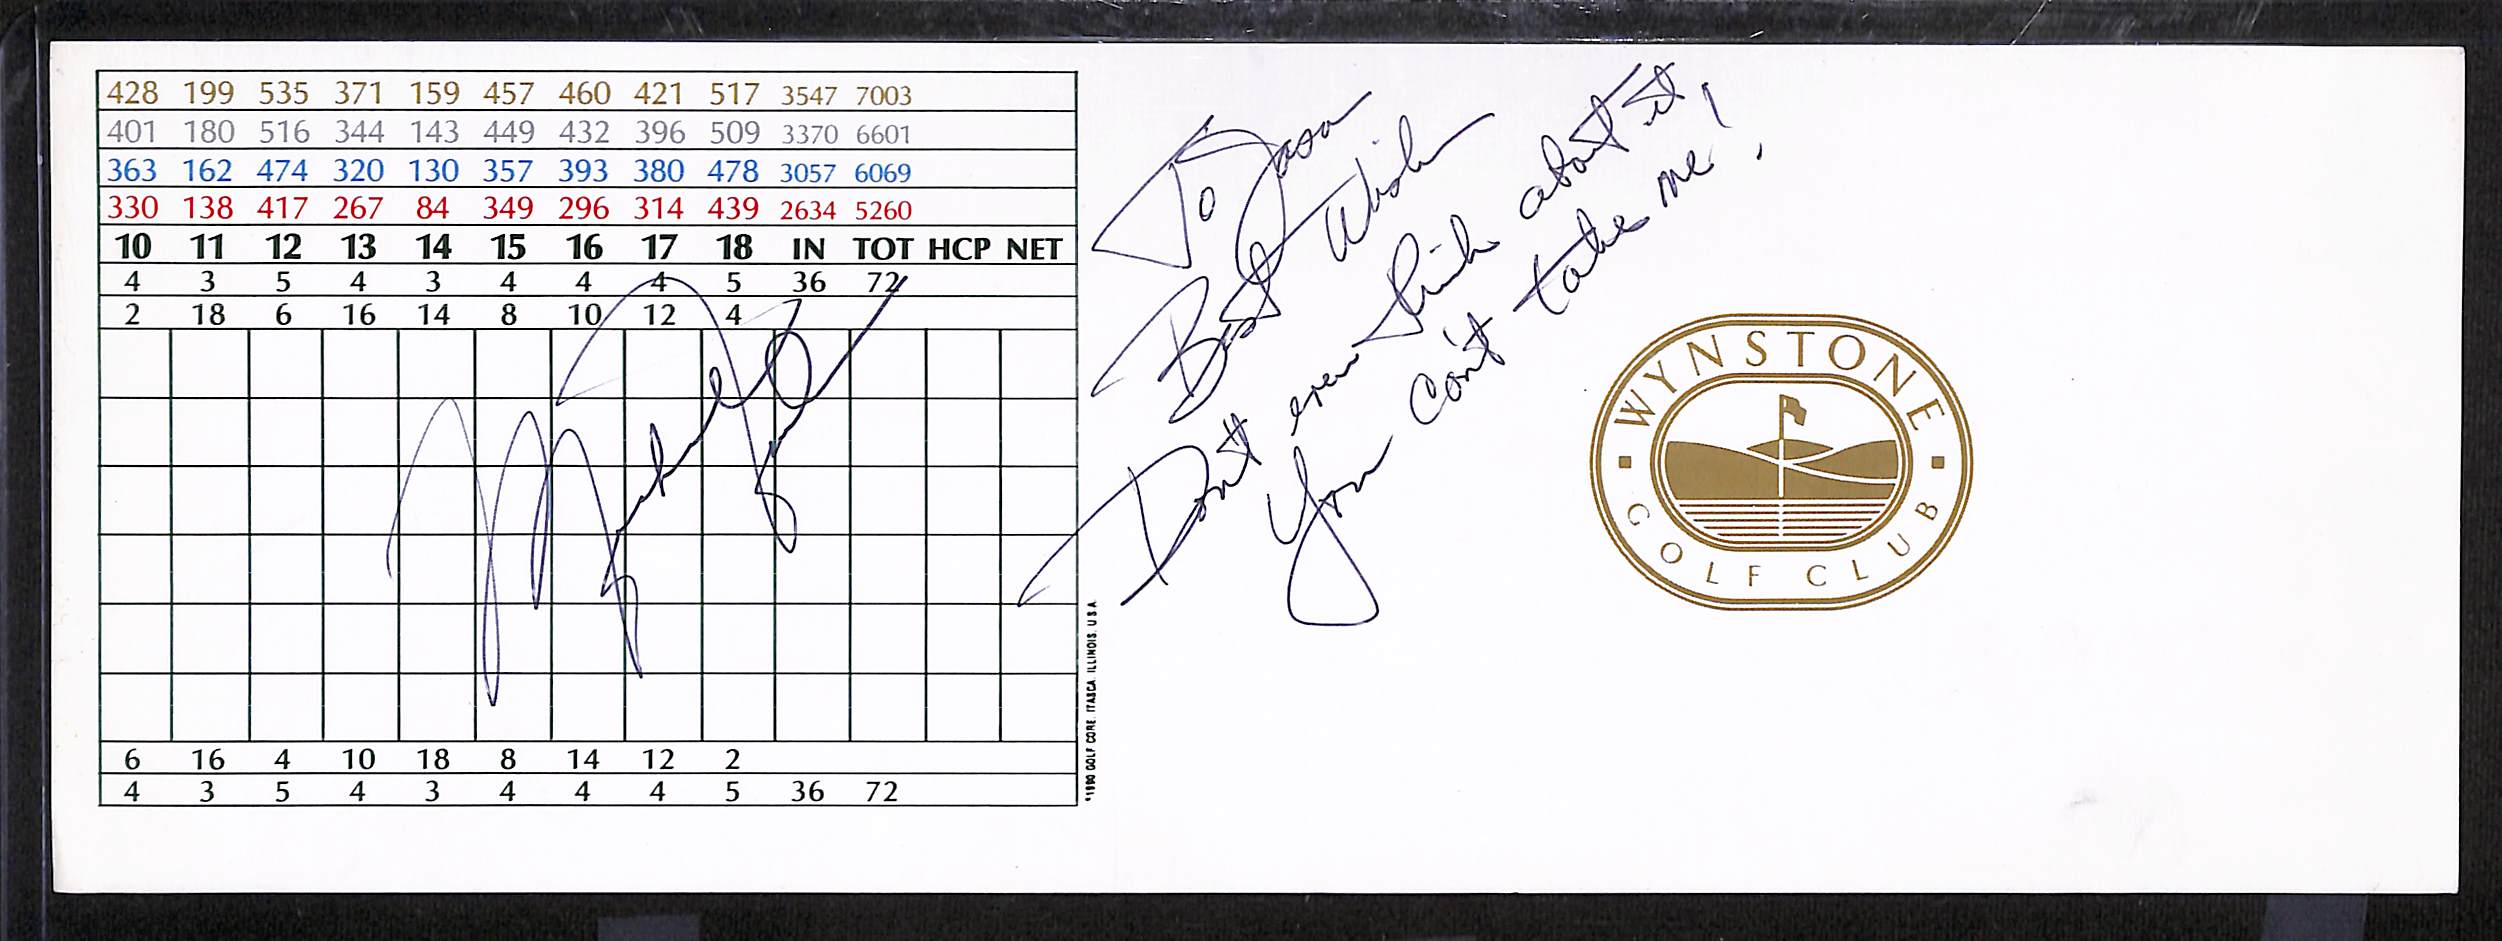 428 199 535 371 159 457 460 421 517 3547 7003
401 180 516 344 143 449 432 396 509 3370 6601
363 162 474 320 130 357 393 380 478 3057 6069
330 138 417 267 84 349 296 314 439 2634 5260
10 11 12 13 14 15 16 17 18 IN TOT HCP NET
4 3 5 4 3 4 4 4 5 36 72
2 18 6 16 14 8 10 12 4
Michael Jordan
6 16 4 10 18 8 14 12 2
4 3 5 4 3 4 4 4 5 36 72
©1990 GOLF CORE. ITASCA. ILLINOIS. U S A
To Jason
Best Wishes
Don't even think about it,
You can't take me!
WYNSTONE
GOLF CLUB